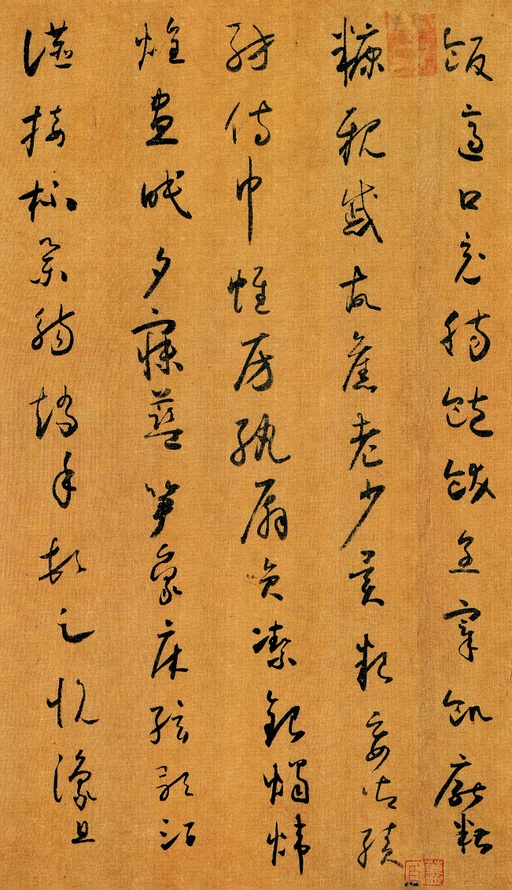 飯適口充腸飽飫烹宰飢厭糟
糠親戚故舊老少異糧妾御績
紡侍巾帷房紈扇員潔銀燭煒
煌晝眠夕寐藍笋象床絃歌酒
讌接杯舉觴矯手頓足悅豫且